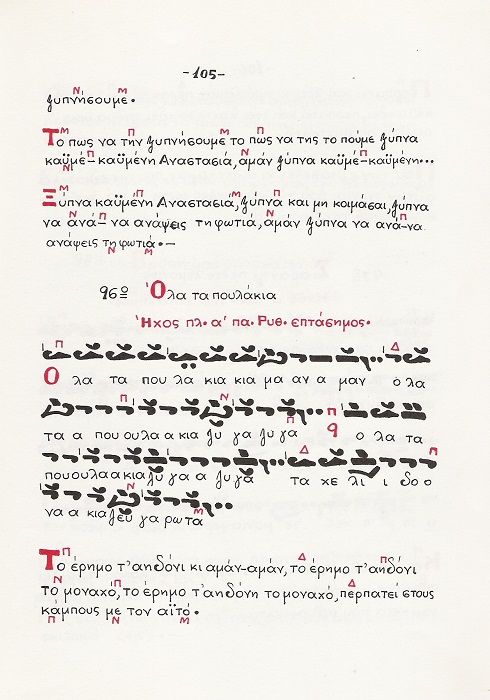 -105-
ξυπνήσουμε.
Το πως να την ξυπνήσουμε το πως να της το πούμε ξύπνα
καϋμέ-καϋμένη Αναστασιά, αμάν ξύπνα καϋμέ-καϋμένη...
Ξύπνα καϋμένη Αναστασιά, ξύπνα και μη κοιμάσαι, ξύπνα
να ανά-να ανάψεις τη φωτιά, αμάν ξύπνα να ανα-να
ανάψεις τη φωτιά.-
96ο Όλα τα πουλάκια
Ήχος πλ. α' πα. Ρυθ. επτάσημος.
Ο λα τα που λα κια κια μα αν α μαν ο λα
τα α που ου λα α κια ζυ γα ζυ γα ο λα τα
που ου λα α κια ζυ γα α ζυ γα τα χε λι ι δο ο
να α κια ζευ γα ρω τα
Το έρημο τ'αηδόνι κι αμάν-αμάν, το έρημο τ'αηδόνι
το μοναχό, το έρημο τ'αηδόνη το μοναχό, περπατεί στους
κάμπους με τον αϊτό.